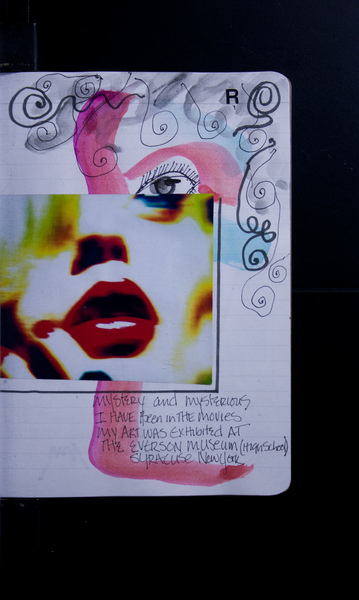 R
MYSTERY and MYSTERIOUS
I HAVE Been in THE MOVIES
MY ART WAS EXHIBITED AT
THE EVERSON MUSEUM (HIGH SCHOOL)
SYRACUSE NEW YORK